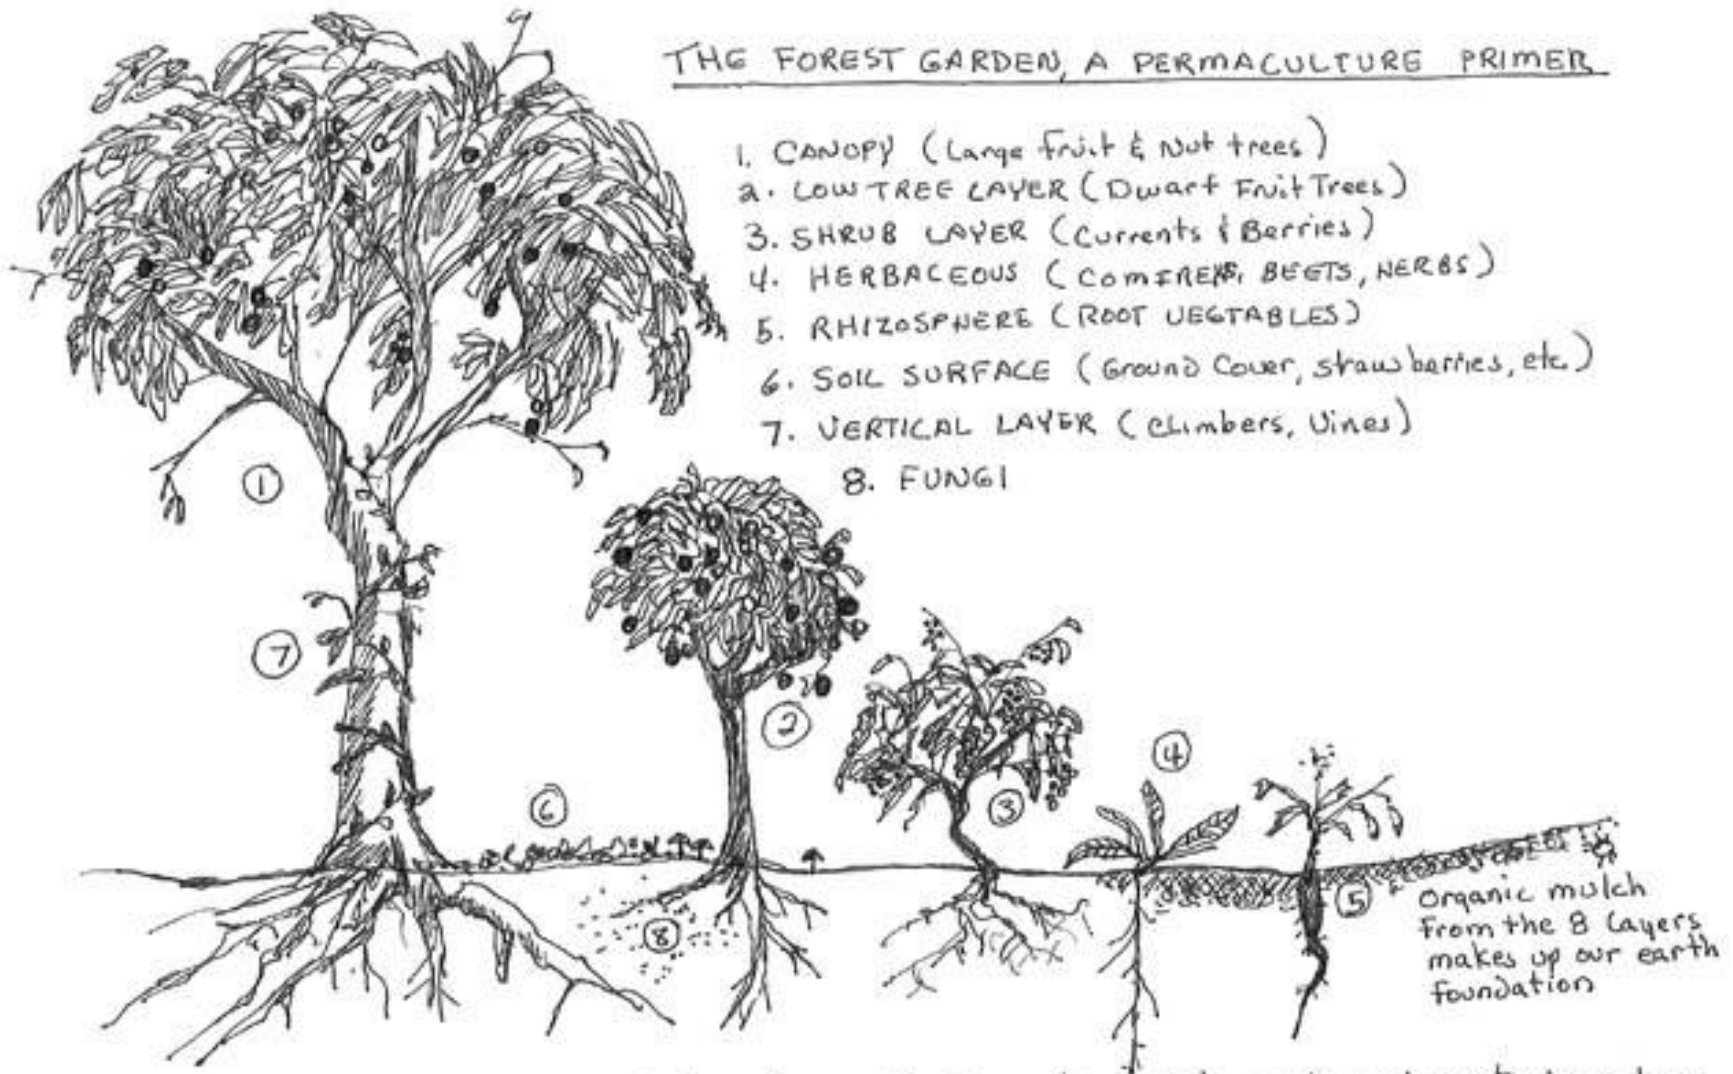 THE FOREST GARDEN, A PERMACULTURE PRIMER
1. CANOPY (Large fruit & Nut trees)
2. LOW TREE LAYER (Dwarf Fruit Trees)
3. SHRUB LAYER (Currents & Berries)
4. HERBACEOUS (COMFREYS, BEETS, HERBS)
5. RHIZOSPHERE (ROOT VEGTABLES)
6. SOIL SURFACE (Ground Cover, strawberries, etc.)
7. VERTICAL LAYER (Climbers, Vines)
8. FUNGI
1
7
6
2
3
4
8
5
Organic mulch
from the 8 layers
makes up our earth
foundation